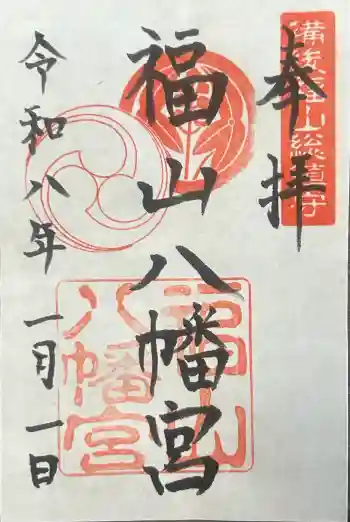 奉拝
備後福山総鎮守
福山八幡宮
福山
八幡宮
令和八年一月一日